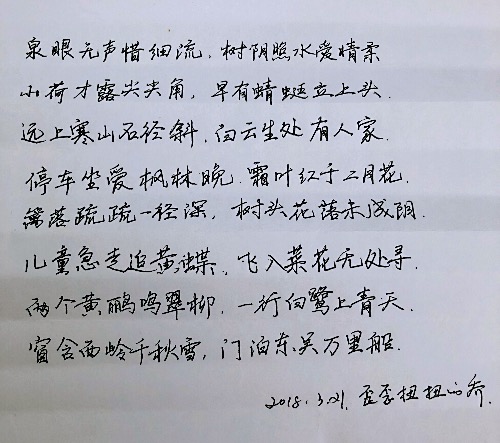 泉眼无声惜细流，树阴照水爱情柔
小荷才露尖尖角，早有蜻蜓立上头
远上寒山石径斜，白云生处有人家.
停车坐爱枫林晚，霜叶红于二月花.
篱落疏疏一径深，树头花落未成阴.
儿童急走追黄蝶，飞入菜花无处寻.
两个黄鹂鸣翠柳，一行白鹭上青天.
窗含西岭千秋雪，门泊东吴万里船.
2018.3.21. 歪歪扭扭的乔.